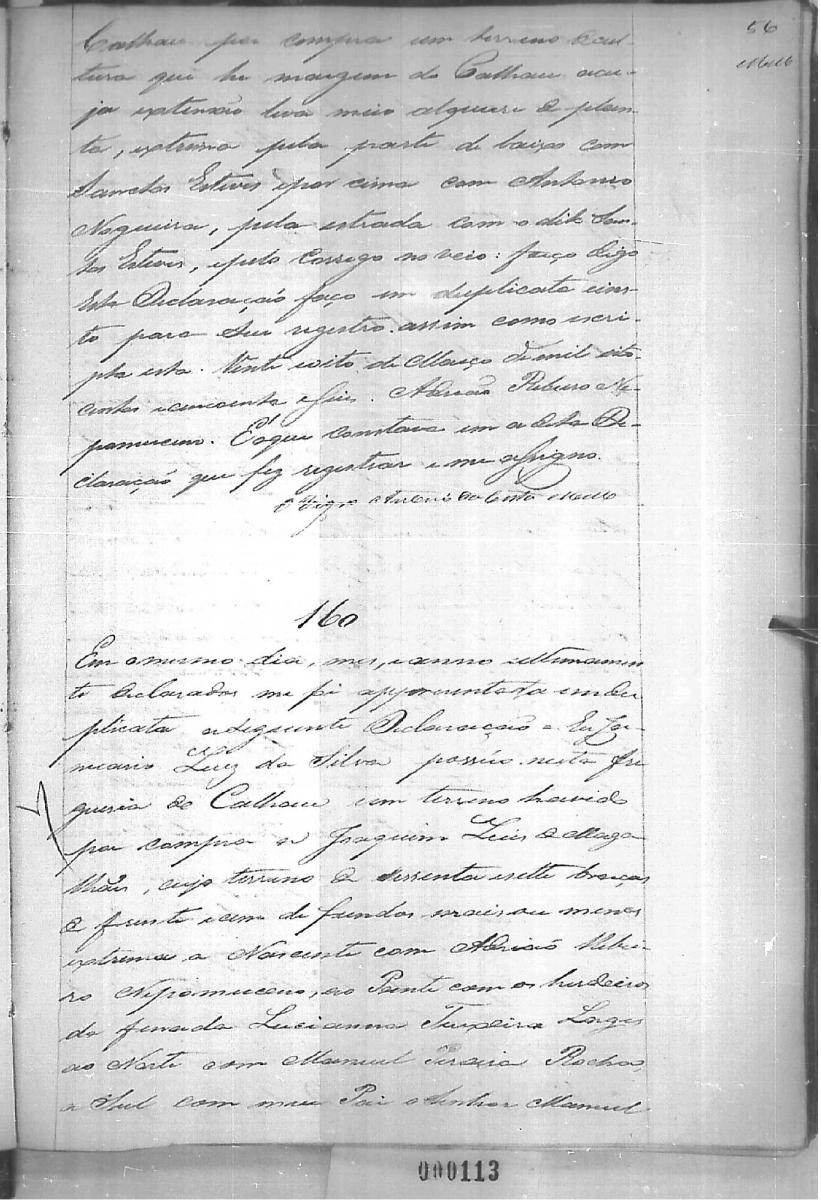 56
Mello
Calhau por compra um terreno de cul-
tura que he margem do Calhau cu-
ja extensão leva meio alqueire de plan-
ta, extrema pela parte de baixo com
Sanctos Esteves e por cima com Antonio
Nogueira, pela estrada com o dito San-
tos Esteves, e pelo Corrego no veio: faço digo
Esta Declaração faço em duplicata
para Seu registro assim como escri-
pta esta. Vinte e oito de Março de mil oito
centos e cincoenta e seis. Adrião Ribeiro Ne-
pomuceno. É o que constava em a dita De-
claração que fez registrar e me assigno.
O Vigro Antonio da Costa Mello
160
Em o mesmo dia, mes, e anno ultimamen
te declarados me foi appresentada em du
plicata a seguinte Declaração = Eu
Luiz da Silva possuo nesta Fre
guesia do Calhau um terreno havido
por compra a Joaquim Luis de Maga
lhães, cujo terreno de sessenta e sette braças
de frente e cem de fundos mais ou menos
extrema a Nascente com Adrião Ribei-
ro Nepomuceno, ao Poente com os herdeiros
da finada Lucianna Teixeira Lages
ao Norte com Manuel Pereira Rocha,
a Sul com meu Pai o Senhor Manuel
000113